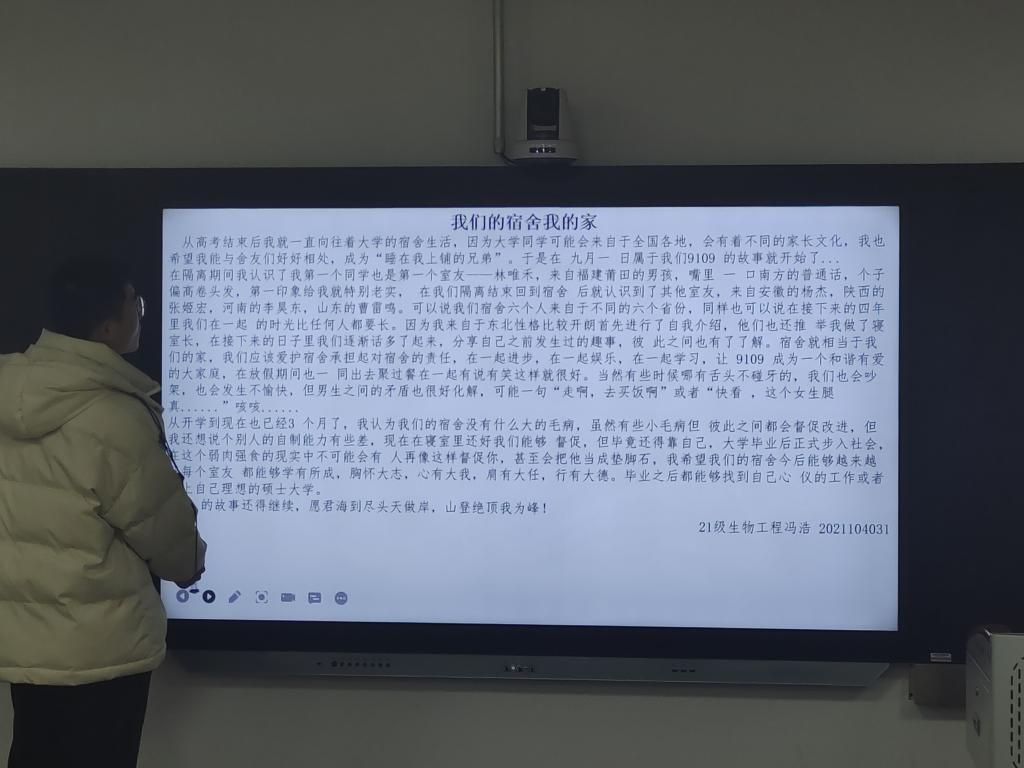 我们的宿舍我的家
从高考结束后我就一直向往着大学的宿舍生活，因为大学同学可能会来自于全国各地，会有着不同的家长文化，我也
希望我能与舍友们好好相处，成为“睡在我上铺的兄弟”。于是在 九月一 日属于我们9109 的故事就开始了...
在隔离期间我认识了我第一个同学也是第一个室友——林唯禾，来自福建莆田的男孩，嘴里 一 口南方的普通话，个子
偏高卷头发，第一印象给我就特别老实， 在我们隔离结束回到宿舍 后就认识到了其他室友，来自安徽的杨杰，陕西的
张姬宏，河南的李昊东、山东的曹雷鸣。可以说我们宿舍六个人来自于不同的六个省份，同样也可以说在接下来的四年
里我们在一起 的时光比任何人都要长。因为我来自于东北性格比较开朗首先进行了自我介绍，他们也还推 举我做了寝
室长，在接下来的日子里我们逐渐话多了起来，分享自己之前发生过的趣事，彼 此之间也有了了解。宿舍就相当于我
们的家，我们应该爱护宿舍承担起对宿舍的责任，在一起进步，在一起娱乐，在一起学习，让 9109 成为一个和谐有爱
的大家庭，在放假期间也一 同出去聚过餐在一起有说有笑这样就很好。当然有些时候哪有舌头不碰牙的，我们也会吵
架，也会发生不愉快，但男生之间的矛盾也很好化解，可能一句“走啊，去买饭啊”或者“快看 ，这个女生腿
真......”咳咳......
从开学到现在也已经3 个月了，我认为我们的宿舍没有什么大的毛病，虽然有些小毛病但 彼此之间都会督促改进，但
我还想说个别人的自制能力有些差，现在在寝室里还好我们能够 督促，但毕竟还得靠自己，大学毕业后正式步入社会，
在这个弱肉强食的现实中不可能会有 人再像这样督促你，甚至会把他当成垫脚石，我希望我们的宿舍今后能够越来越
每个室友 都能够学有所成，胸怀大志，心有大我，肩有大任，行有大德。毕业之后都能够找到自己心 仪的工作或者
上自己理想的硕士大学。
的故事还得继续，愿君海到尽头天做岸，山登绝顶我为峰！
21级生物工程冯浩 2021104031